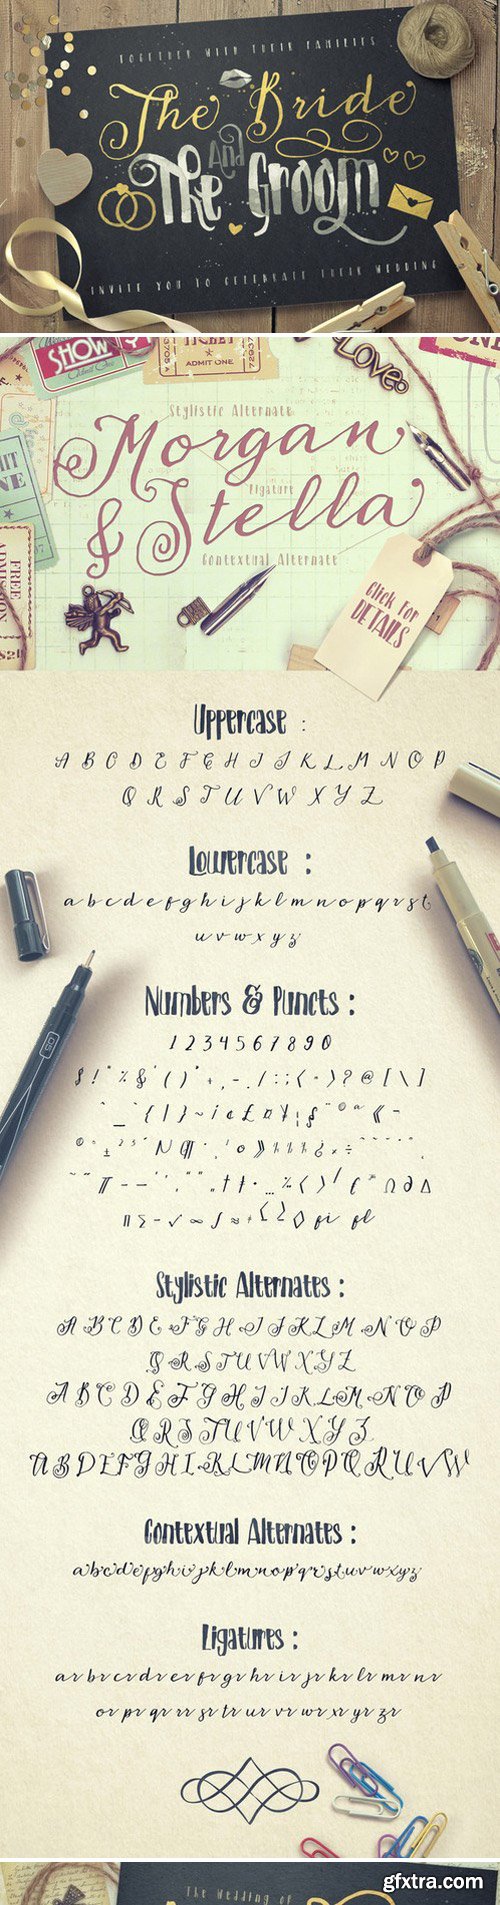 TOGETHER WITH THEIR FAMILIES
The Bride
And
The Groom
INVITE YOU TO CELEBRATE THEIR WEDDING
SHOW
TICKET
ADMIT ONE
Love
Stylistic Alternate
Morgan
Ligature
& Stella
Contextual Alternate
FREE
ADMISSION
Click For
DETAILS
Uppercase :
A B C D E F G H I J K L M N O P
Q R S T U V W X Y Z
Lowercase :
a b c d e f g h i j k l m n o p q r s t
u v w x y z
Numbers & Puncts :
1 2 3 4 5 6 7 8 9 0
Stylistic Alternates :
A B C D E F G H I J K L M N O P
Q R S T U V W X Y Z
A B C D E F G H I J K L M N O P
Q R S T U V W X Y Z
A B D E F G H I K L M N O P Q R U V W
Contextual Alternates :
a b c d e f g h i j k l m n o p q r s t u v w x y z
Ligatures :
ar br cr dr er fr gr hr ir jr kr lr mr nr
or pr qr rr sr tr ur vr wr xr yr zr
The Wedding of
gfxtra.com